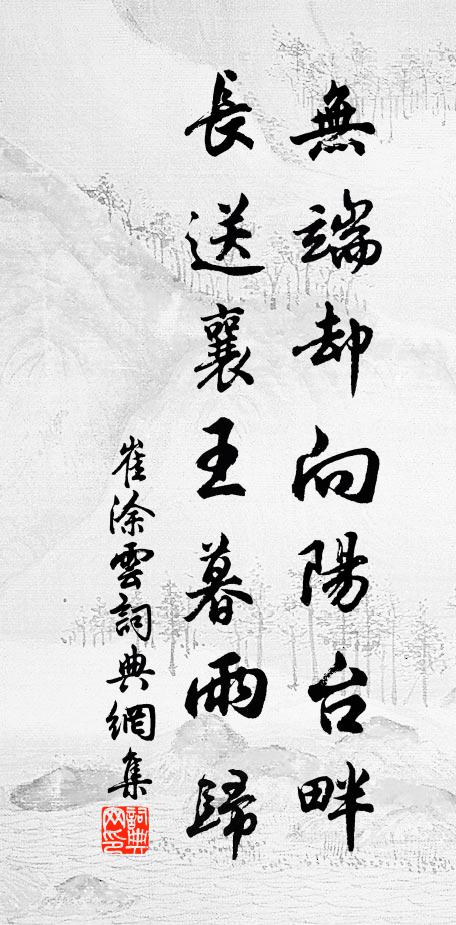 無端却向陽台畔
長送襄王暮雨歸
崔涂雲詞典網集
詞典網印